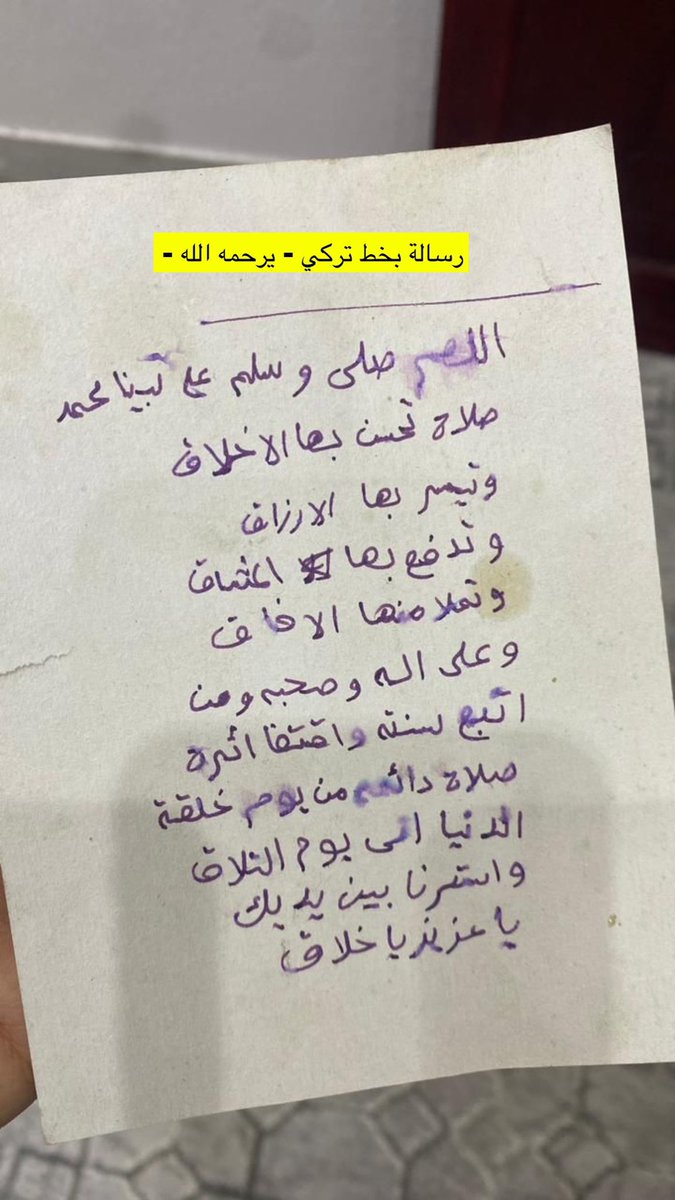 رسالة بخط تركي - يرحمه الله -
اللهم صلى وسلم على نبينا محمد
صلاة تحسن بها الاخلاق
وتيسر بها الارزاق
وتدفع بها المشاق
وتملا منها الافاق
وعلى اله وصحبه ومن
اتبع سنته واقتفا اثرة
صلاة دائمه من يوم خلقة
الدنيا الى يوم التلاق
واسترنا بين يديك
يا عزيز يا خلاق